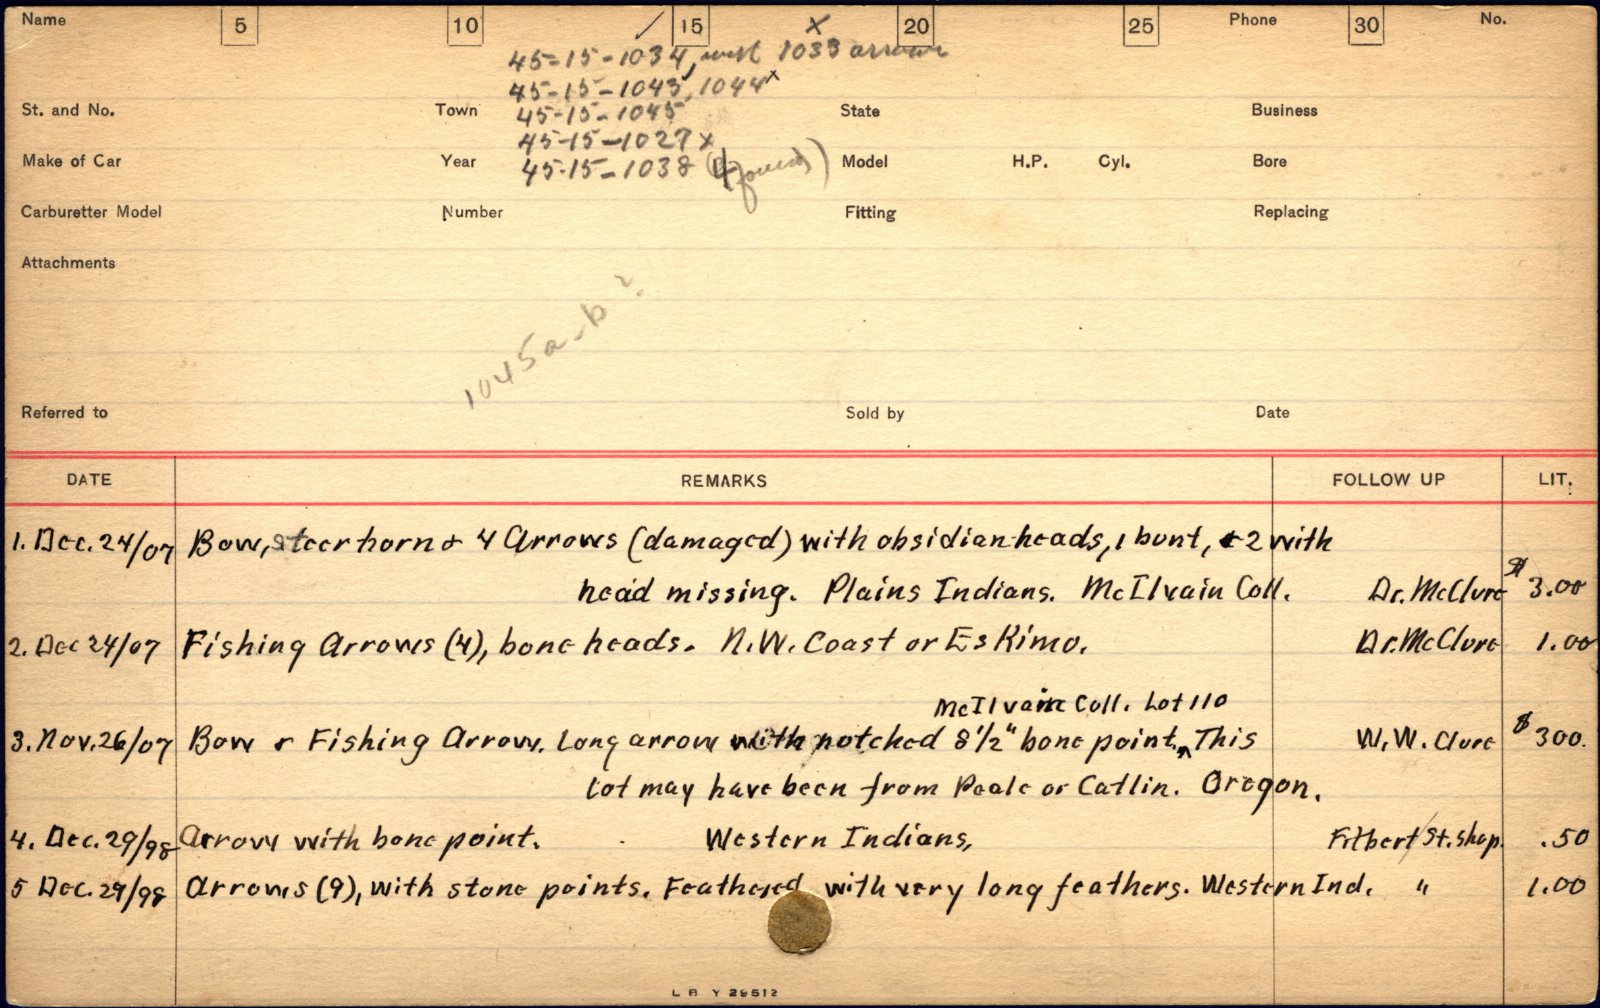 Name 5 10 15 20 25 Phone 30 No.
45-15-1034, 1033 arrow
45-15-1043, 1044 x
St. and No. Town 45-15-1045 State Business
45-15-1027 x
Make of Car Year 45-15-1038 (4 found) Model H.P. Cyl. Bore
Carburetter Model Number Fitting Replacing
Attachments
1045a-b?
Referred to Sold by Date
DATE REMARKS FOLLOW UP LIT.
1. Dec. 24/07 Bow, steer horn & 4 Arrows (damaged) with obsidian heads, 1 bunt, & 2 with
head missing. Plains Indians. McIlvain Coll. Dr. McClure $3.00
2. Dec 24/07 Fishing Arrows (4), bone heads. N.W. Coast or Eskimo. Dr. McClure 1.00
McIlvain Coll. Lot 110
3. Nov. 26/07 Bow & Fishing Arrow. Long arrow with notched 8½" bone point. ^ This W.W. Clure $300.
lot may have been from Peale or Catlin. Oregon.
4. Dec. 29/98 Arrow with bone point. Western Indians, Filbert St. shop. .50
5 Dec. 29/98 Arrows (9), with stone points. Feathered with very long feathers. Western Ind. " 1.00
L B Y 29512